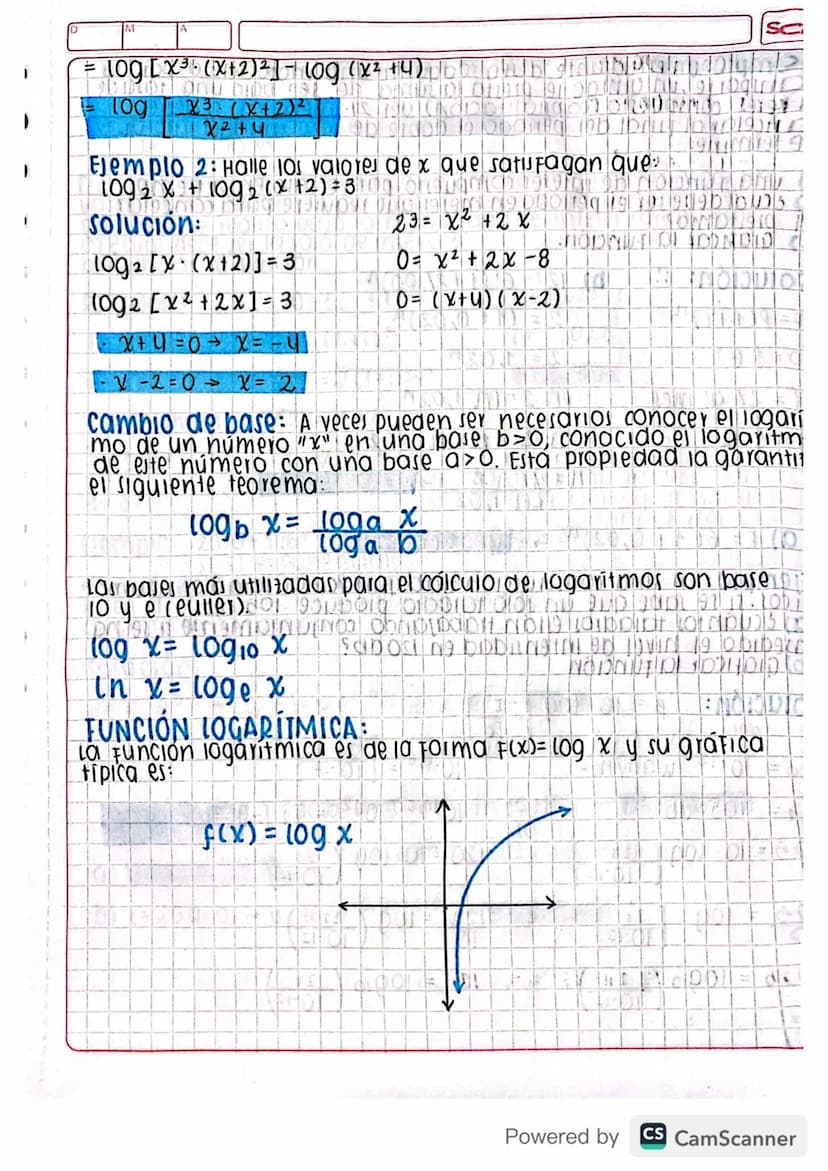 D M A
= log [x³ · (x+2)²] - log (x² + 4)
= log [x³ · (x+2)² / x² + 4]
Ejemplo 2: Halle los valores de x que satisfagan que:
log₂ x + log₂ (x + 2) = 3
Solución:
log₂ [x · (x+2)] = 3
log₂ [x² + 2x] = 3
2³ = x² + 2x
0 = x² + 2x - 8
0 = (x+4) (x-2)
· x + 4 = 0 → x = -4
· x - 2 = 0 → x = 2
Cambio de base: A veces pueden ser necesarios conocer el logarí
mo de un número "x" en una base b>0, conocido el logaritm
de este número con una base a>0. Está propiedad la garanti
el siguiente teorema:
log_b x = log_a x / log_a b
Las bases más utilizadas para el cálculo de logaritmos son base
10 y e (euller).
log x = log₁₀ x
ln x = logₑ x
FUNCIÓN LOGARÍTMICA:
La función logarítmica es de la forma f(x) = log x y su gráfica
típica es:
f(x) = log x
Powered by CS CamScanner